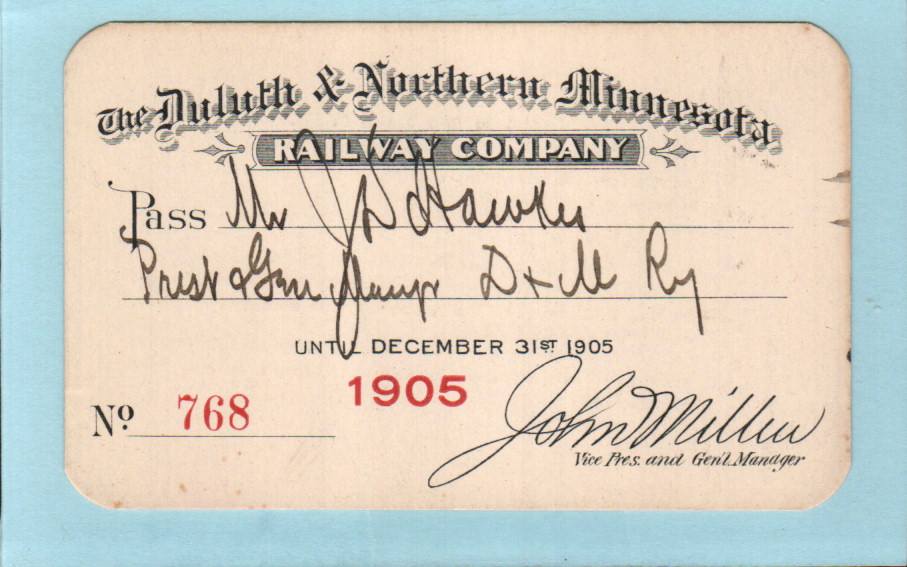 The Duluth & Northern Minnesota
RAILWAY COMPANY
Pass Mr J D Hawks
Prest & Gen Mangr D & M Ry
UNTIL DECEMBER 31ST 1905
1905
No. 768
John Millen
Vice Pres. and Gen'l. Manager